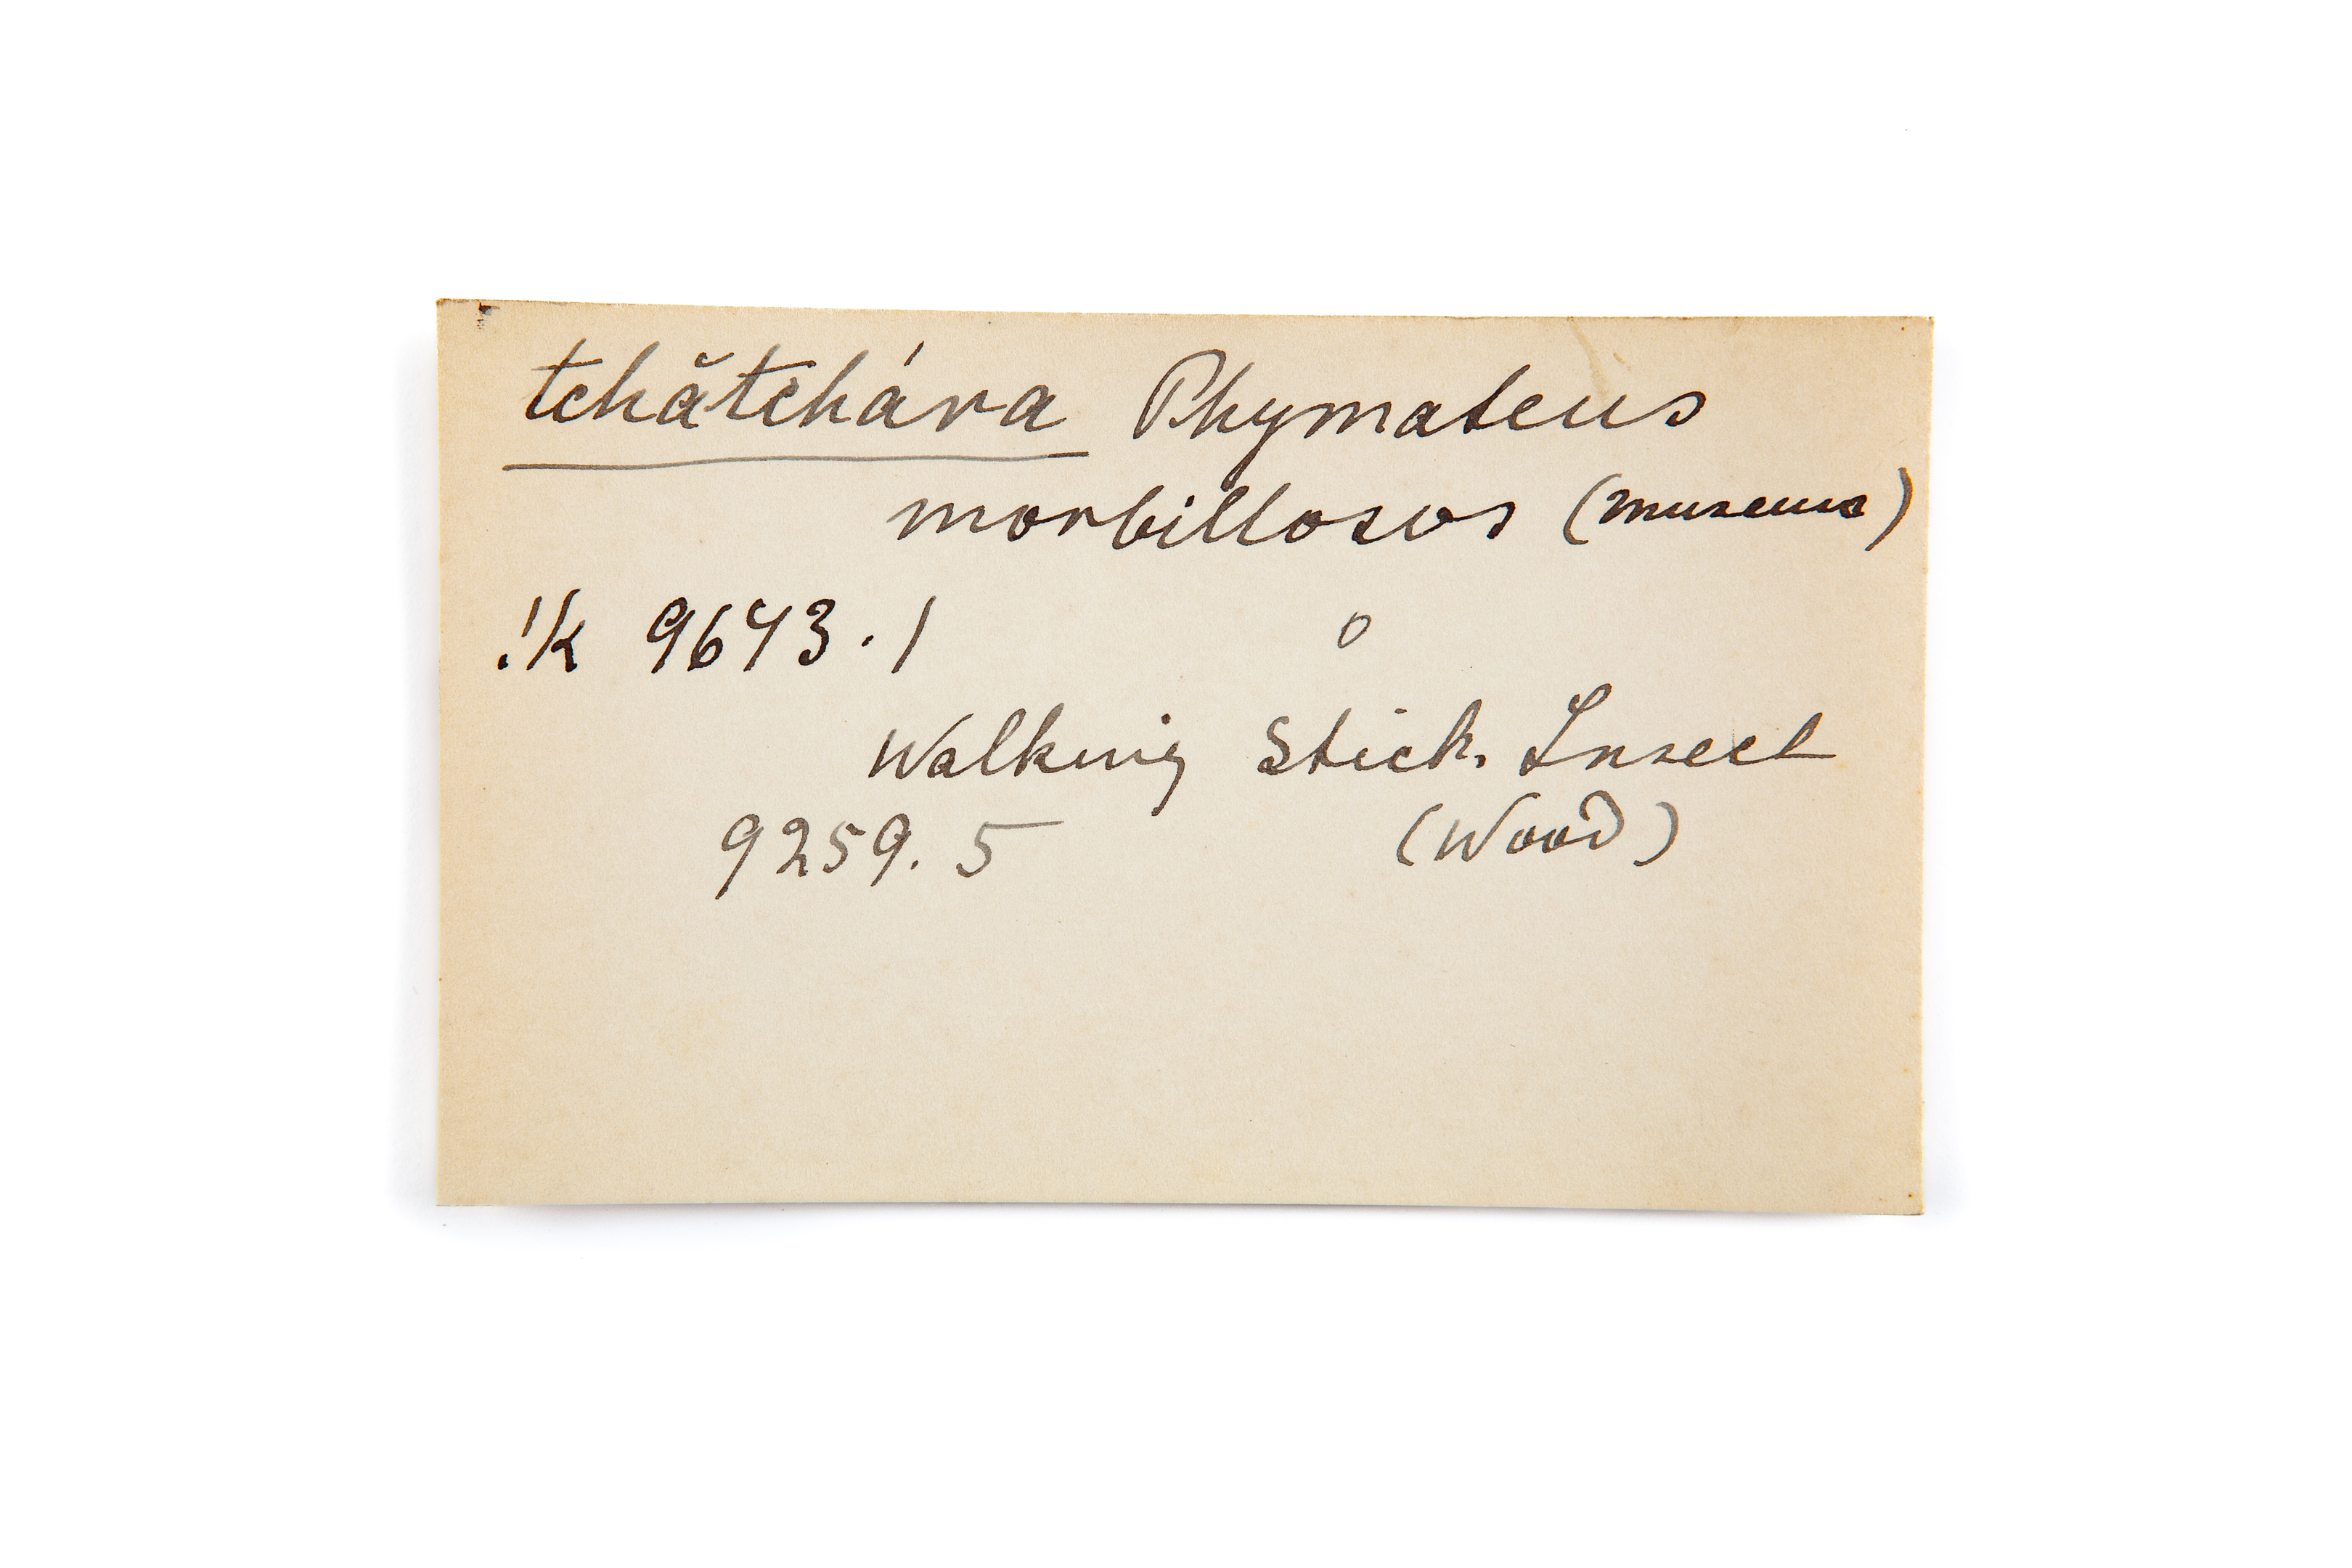 tchătchára Phymateus
morbillosus (museum)
!k 9643.1
Walking Stick. Insect
9259.5 (Wood)